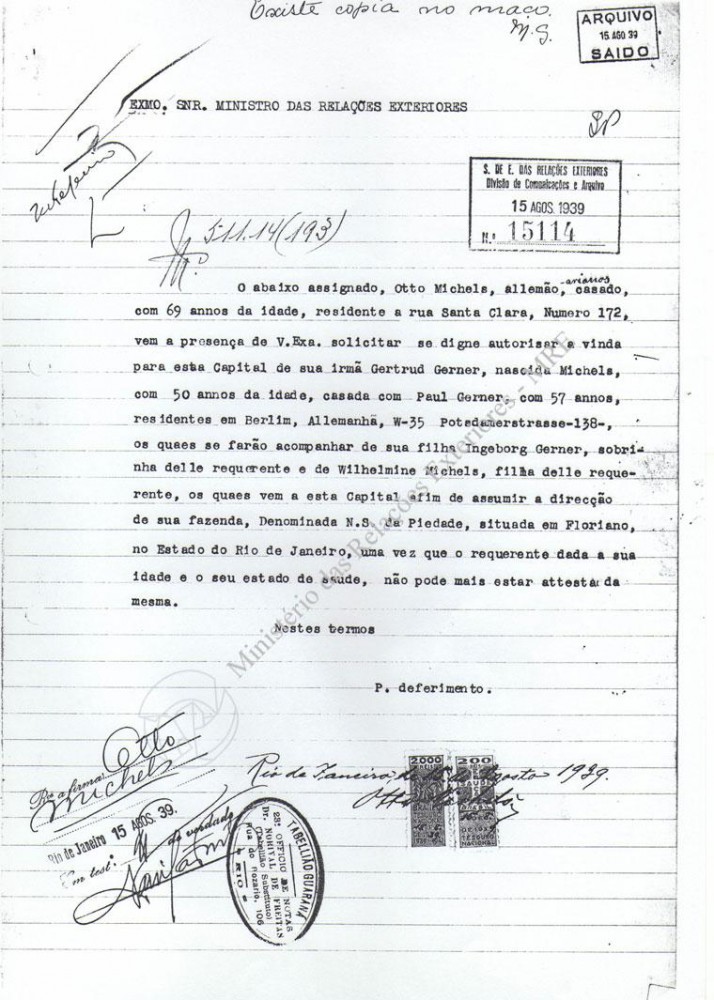 Existe copia no maço.
M.S.
ARQUIVO
15 AGO 39
SAIDO
EXMO. SNR. MINISTRO DAS RELAÇÕES EXTERIORES
S. DE E. DAS RELAÇÕES EXTERIORES
Divisão de Comunicações e Arquivo
15 AGOS. 1939
N.º 15114
511.14(193)
-arianos
O abaixo assignado, Otto Michels, allemão, casado,
com 69 annos da idade, residente a rua Santa Clara, Numero 172,
vem a presença de V.Exa. solicitar se digne autorisar a vinda
para esta Capital de sua irmã Gertrud Gerner, nascida Michels,
com 50 annos da idade, casada com Paul Gerner, com 57 annos,
residentes em Berlim, Allemanhã, W-35 Potsdamerstrasse-138-,
os quaes se farão acompanhar de sua filha Ingeborg Gerner, sobri-
nha delle requerente e de Wilhelmine Michels, filha delle reque-
rente, os quaes vem a esta Capital afim de assumir a direcção
de sua fazenda, Denominada N.S. da Piedade, situada em Floriano,
no Estado do Rio de Janeiro, uma vez que o requerente dada a sua
idade e o seu estado de saude, não pode mais estar attesta da
mesma.
Nestes termos
P. deferimento.
Ministério das Relações Exteriores - MRE
Otto
Michels
Rio de Janeiro 15 AGOS. 39.
da verdade
Rio de Janeiro de 15 de Agosto 1939.
2000
200
TABELLIÃO GUARANÁ
23º OFFICIO DE NOTAS
Dr. NORIVAL DE FREITAS
(Tabellião Substituto)
Rua do Rozario, 106
RIO